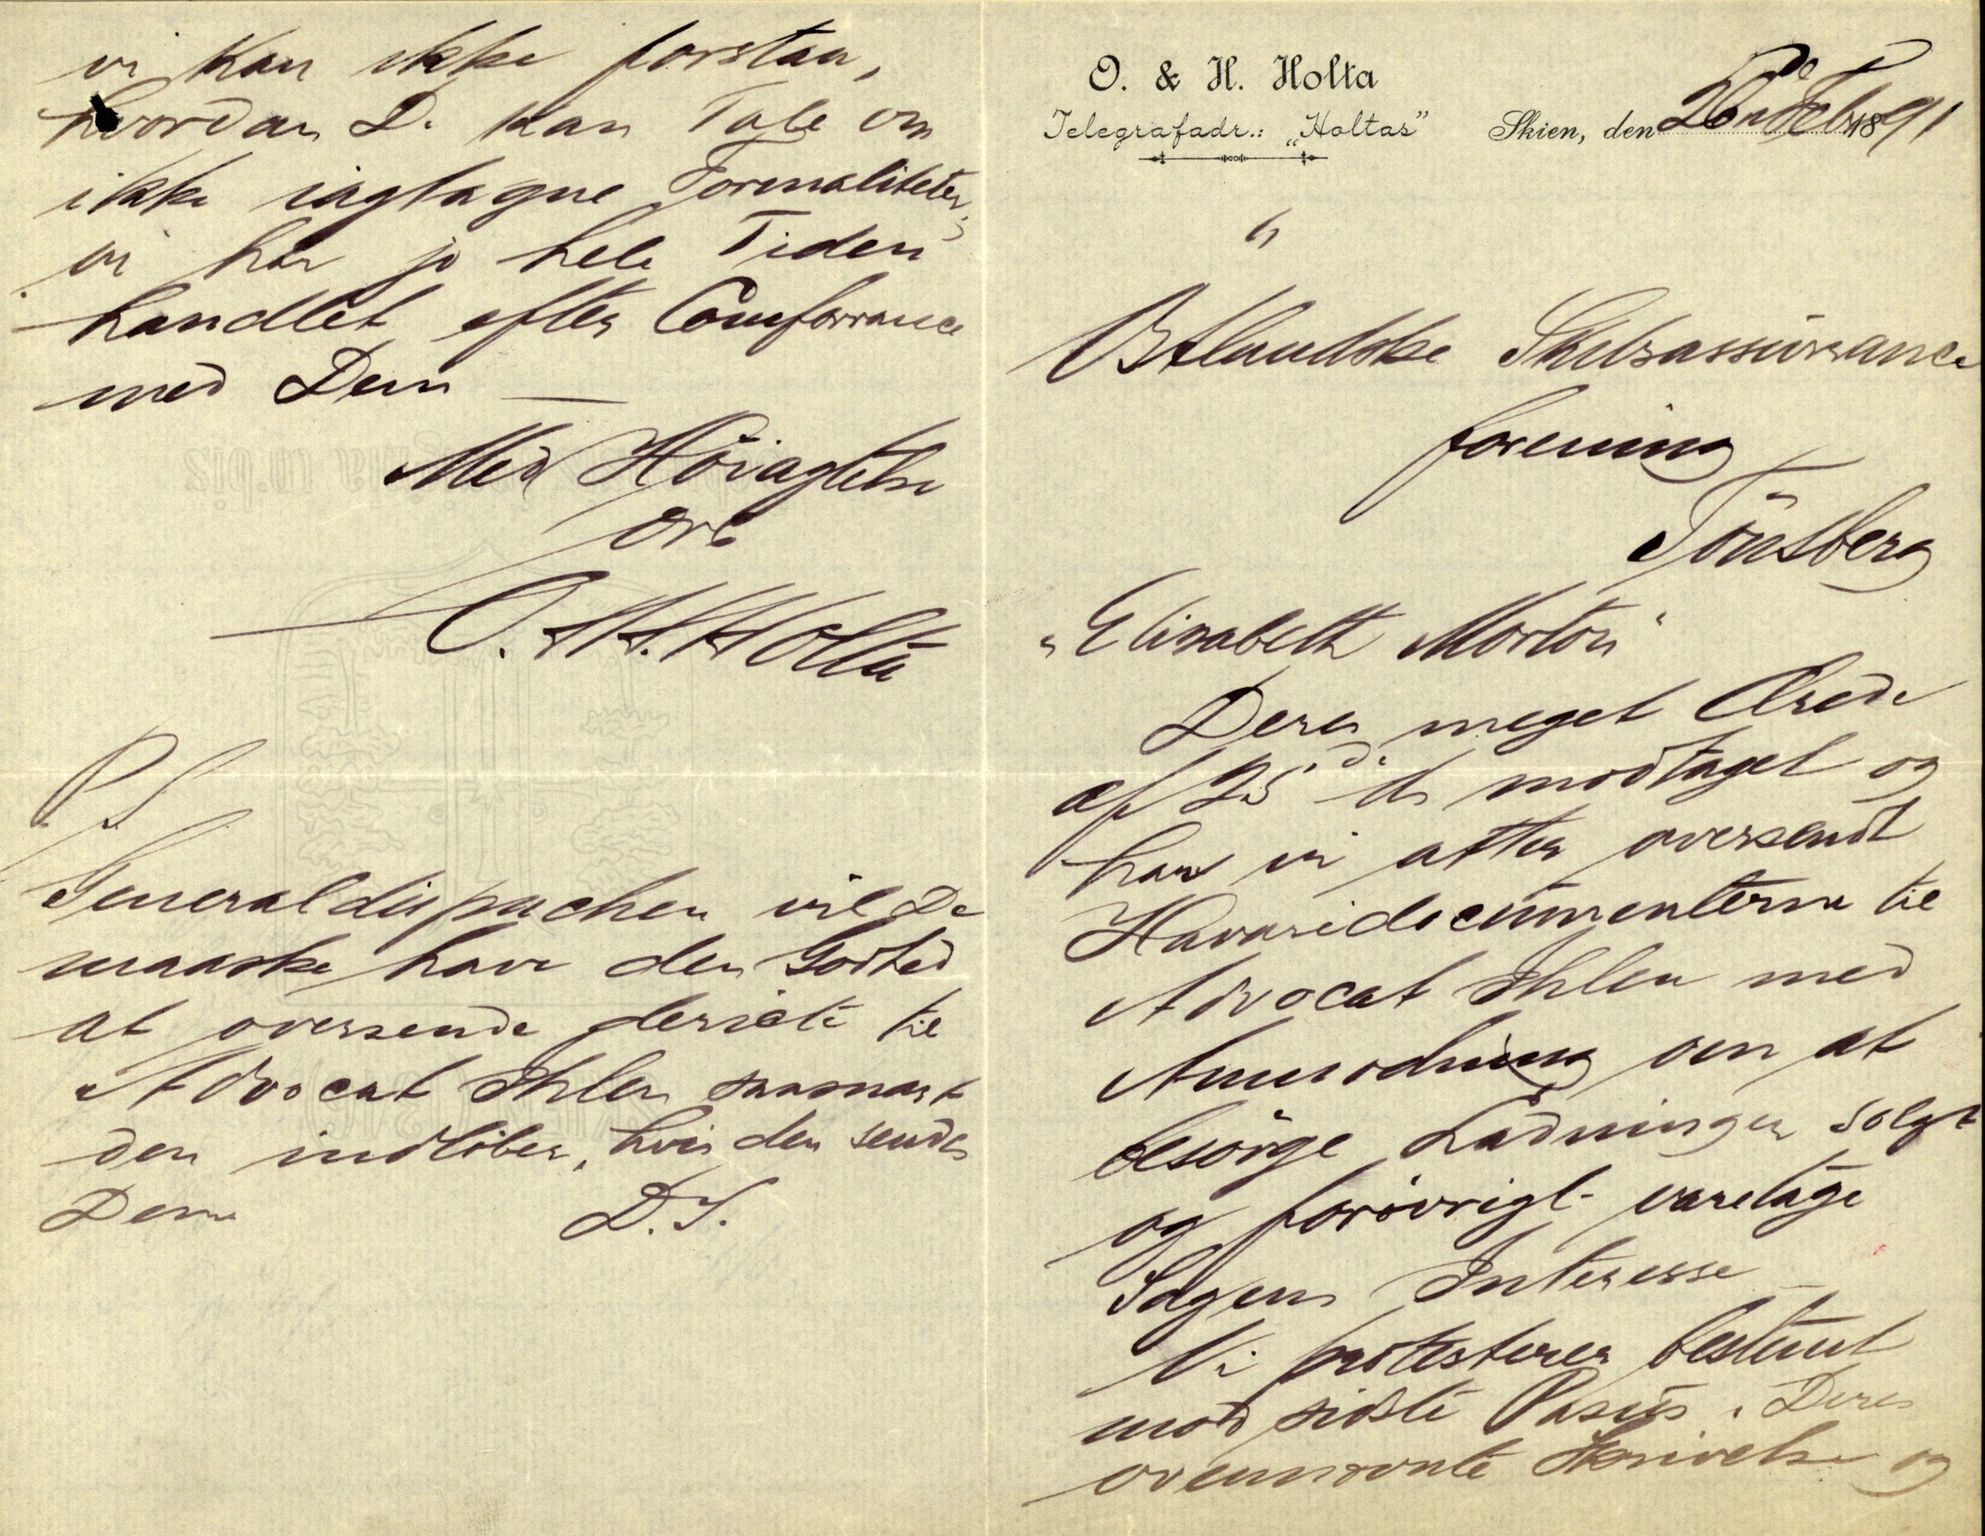 O. & H. Holta
Telegrafadr.: „Holtas”
Skien, den 26de Feb 1891
Østlandske Skibsassürance
forening
Tönsberg
„Elisabeth Morton"
Deres meget Ærede
af 25de ds modtaget og
har vi atter oversendt
Havaridocümenterne til
Advocat Ihlen med
Anmodning om at
besörge Ladningen solgt
og forövrigt varetage
Sagens Interesse
Vi protesterer bestemt
mod sidste Passüs i Deres
ovennævnte Skrivelse og
vi kan ikke forstaa,
hvordan D. kan Tale om
ikke iagtagne Formaliteter,
vi har jo hele Tiden
handlet efter Comforrance
med Dem —
Med Höiagtelse
O. & H. Holta
P.S.
Generaldispachen vil De
maaske have den Godhed
at oversende derecte til
Advocat Ihlen saasnart
den indlöber, hvis den sendes
Dem D.S.